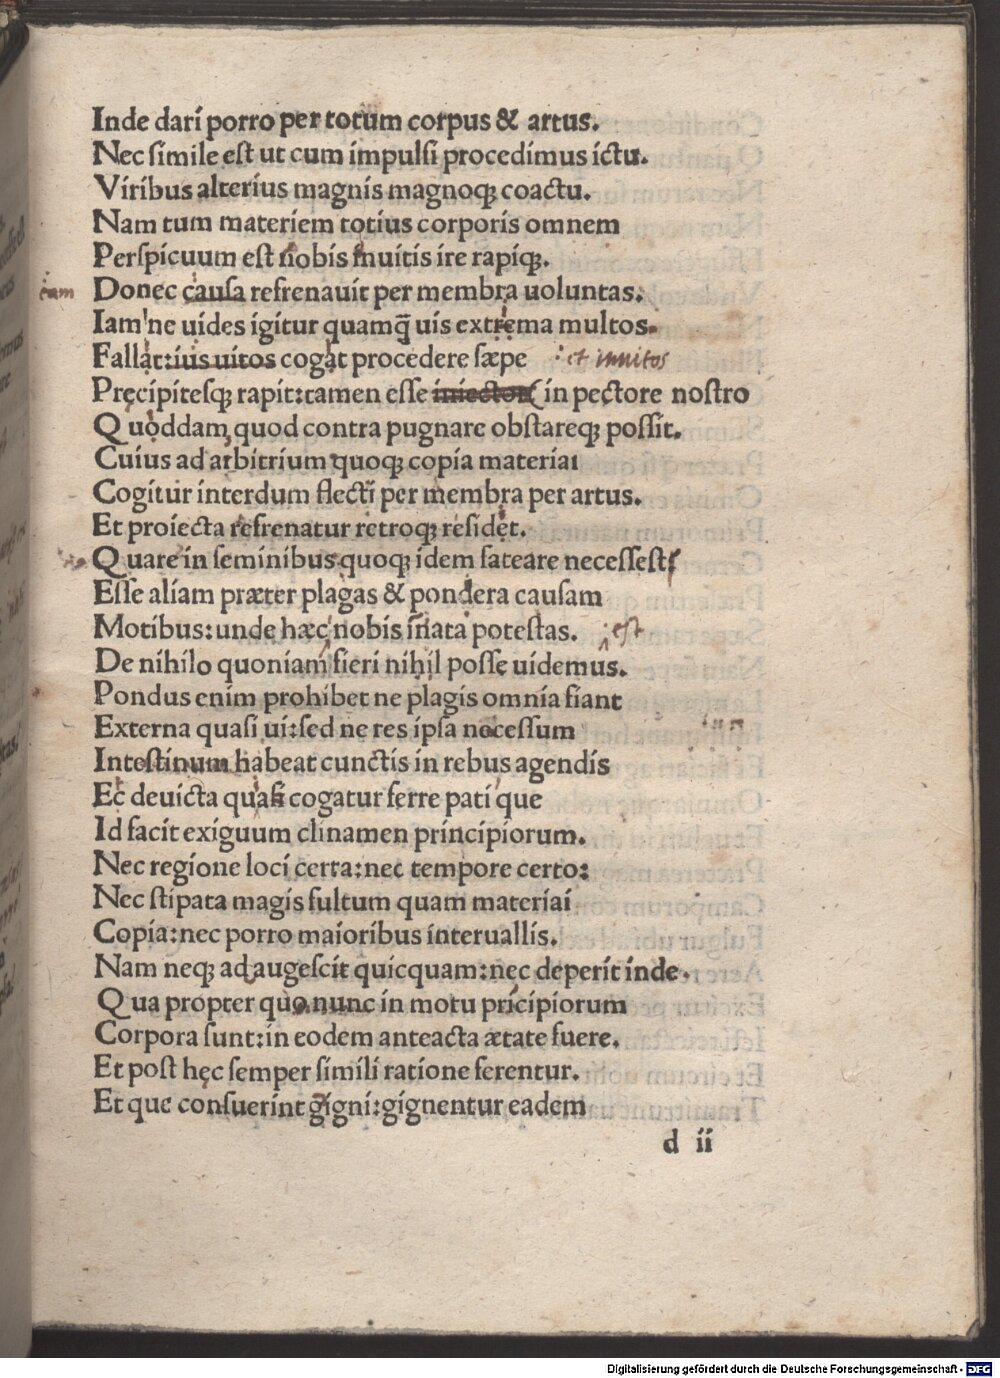 Inde dari porro per totum corpus & artus.
Nec simile est ut cum impulsi procedimus ictu.
Viribus alterius magnis magnoqꝫ coactu.
Nam tum materiem totius corporis omnem
Perspicuum est nobis inuitis ire rapiqꝫ.
eam Donec causa refrenauit per membra uoluntas.
Iam'ne uides igitur quamqꝫ uis extrema multos.
Fallat:ius uitos cogat procedere sæpe : et inuitos
Pręcipitesqꝫ rapit:tamen esse in pectore nostro
Quoddam quod contra pugnare obstareqꝫ possit.
Cuius ad arbitrium quoqꝫ copia materiai
Cogitur interdum flecti per membra per artus.
Et proiecta refrenatur retroqꝫ residet.
Quare in seminibus quoqꝫ idem fateare necessest
Esse aliam præter plagas & pondera causam
Motibus:unde hæc nobis inata potestas. est
De nihilo quoniam fieri nihil posse uidemus.
Pondus enim prohibet ne plagis omnia fiant
Externa quasi ui:sed ne res ipsa necessum
Intestinum habeat cunctis in rebus agendis
Ec deuicta quasi cogatur ferre pati que
Id facit exiguum clinamen principiorum.
Nec regione loci certa:nec tempore certo:
Nec stipata magis fultum quam materiai
Copia:nec porro maioribus interuallis.
Nam neqꝫ ad augescit quicquam:nec deperit inde.
Qua propter quo nunc in motu prícipiorum
Corpora sunt:in eodem anteacta ætate fuere.
Et post hęc semper simili ratione ferentur.
Et que consuerint gigni:gignentur eadem
d ii
Digitalisierung gefördert durch die Deutsche Forschungsgemeinschaft - DFG